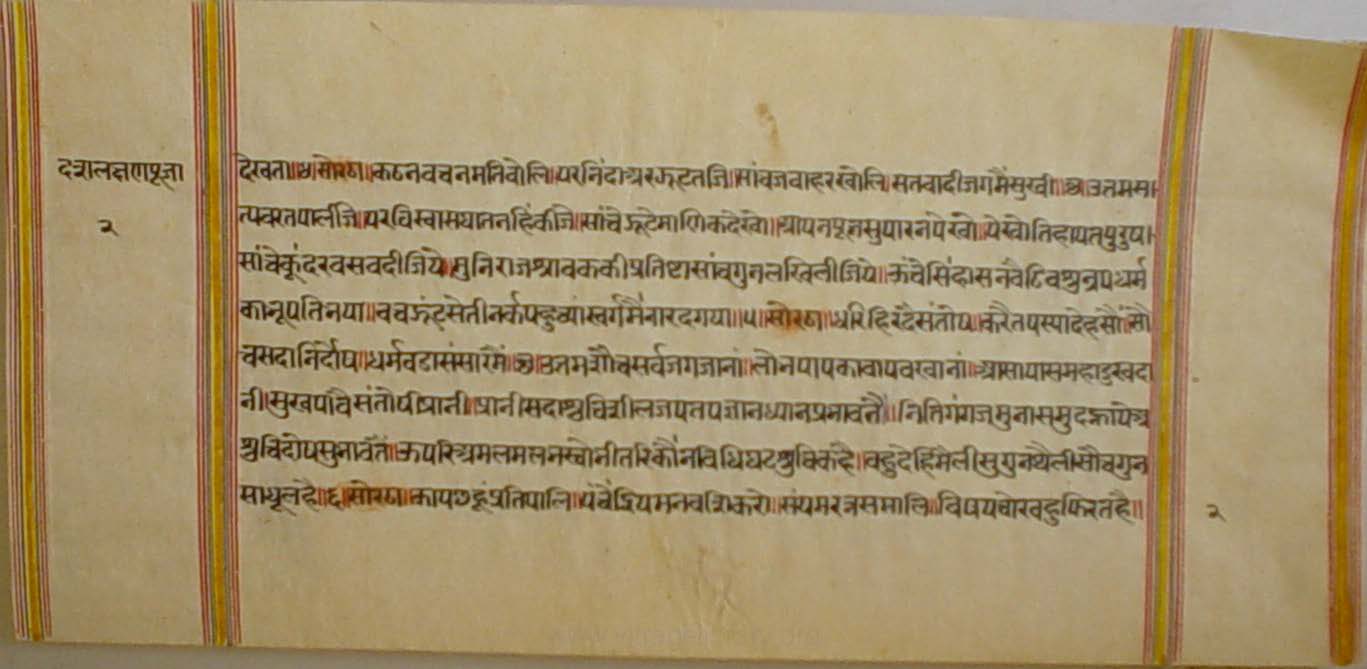 दशलक्षणपूजा
२
देखता॥४॥सोरठा॥कठनवचनमतिवोलि॥परनिंदाअरझूठतजि॥सांचजवाहरखोलि॥सतवादीजगमैंसुखी॥ॐ॥उतमसा
त्यवरतपालीजे॥परविस्वासघातनहिंकीजै॥सांचेझूटेमाणिकदेखो॥आपनपूतसुपारनपेखो॥पेखोतिहायतपुरुषा
सांचेकूंदरवसवदीजिये॥मुनिराजश्रावककीप्रतिष्टासांचगुनलखिलीजिये॥ऊंचेसिंहासनवैठिवशुन्रपधर्म
कानूपतिनया॥वचझूंटसेतीनर्कपहुंच्यांस्वर्गमैंनारदगया॥५॥सोरठा॥धरिहिरदैसंतोष॥करैतपस्यादेहसौं॥सौ
चसदानिर्दोष॥धर्मवडासंसारमैं॥ॐ॥उतमसौचसर्वजगजानां॥लोनपापकावापवखानां॥आसापासमहादुखदा
नी॥सुखपावैसंतोषीप्रानी॥प्रानीसदाशुचिशीलजपतपज्ञानध्यानप्रनावतैं॥नितिगंगजमुनासमुदन्हायेअ
शुचिदोषसुनावतैं॥ऊपरिअमलमलनस्योनीतरिकौनविधिघटशुचिकहै॥वहुदेहिमैलीसुगुनथैलीसौचगुन
साधूलहै॥६॥सोरठा॥कायछहूंप्रतिपालि॥पंचेंद्रियमनवशिकरो॥संयमरत्नसमालि॥विषयचोरवहुफिरतहै॥
२